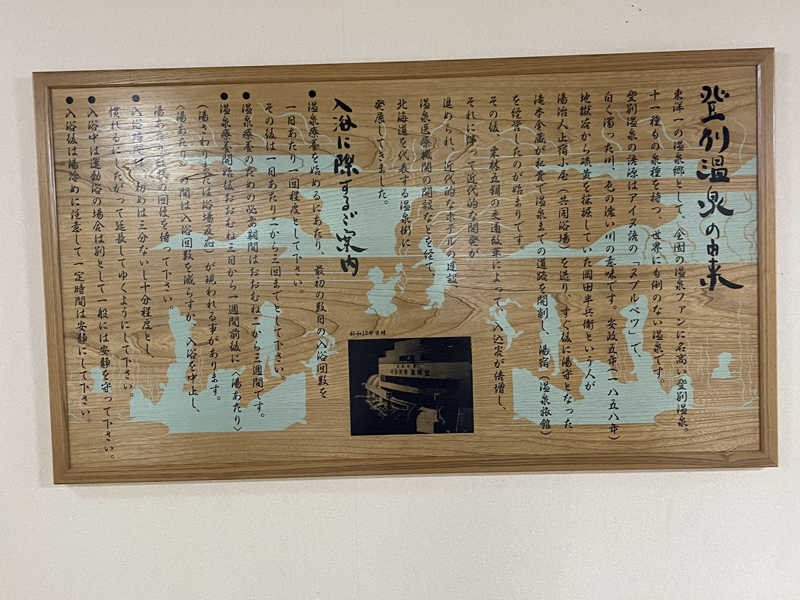 登別温泉の由来
東洋一の温泉郷として、全国の温泉ファンに名高い登別温泉。
十一種もの泉種を持つ、世界にも例のない温泉です。
登別温泉の語源はアイヌ語の「ヌプルペツ」で、
白く濁った川、色の濃い川の意味です。安政五年(一八五八年)
地獄谷から硫黄を採掘していた岡田半兵衛という人が
湯治人止宿小屋(共同浴場)を造り、すぐ後に湯守となった
滝本金蔵が私費で温泉までの道路を開削し、湯宿(温泉旅館)
を経営したのが始まりです。
その後、栗林五朔の交通改革によって、入込客が倍増し、
それに伴って近代的な開発が
進められ、近代的なホテルの建設、
温泉医療機関の開設などを経て、
北海道を代表する温泉街に
発展してきました。
昭和12年頃
入浴に際するご案内
●温泉療養を始めるにあたり、最初の数日の入浴回数を
一日あたり一回程度として下さい。
その後は一日あたり二から三回までとして下さい。
●温泉療養のための必要期間はおおむね二から三週間です。
●温泉療養開始後おおむね三日から一週間前後に〈湯あたり〉
(湯さわりまたは浴場反応)が現われる事があります。
〈湯あたり〉の間は入浴回数を減らすか、入浴を中止し、
湯あたり症状の回復を待って下さい。
●入浴時間は、初めは三分ないし十分程度とし
慣れるにしたがって延長してゆくようにして下さい。
●入浴中は運動浴の場合は別として一般には安静を守って下さい。
●入浴後は湯冷めに注意して一定時間は安静にして下さい。